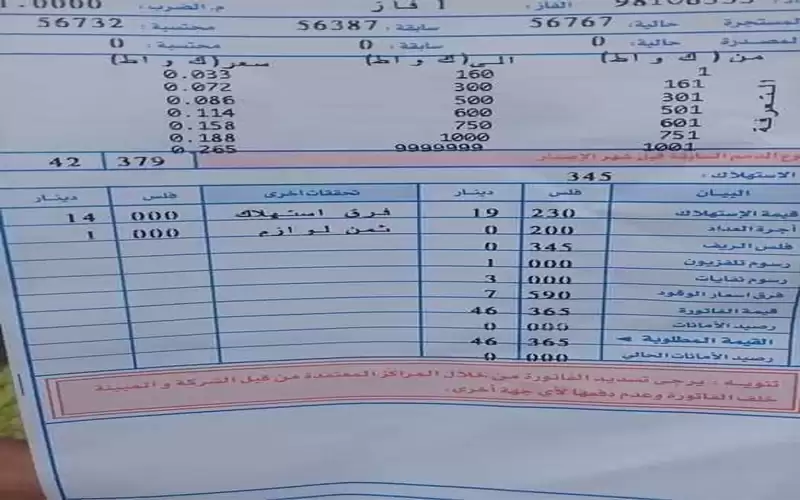 الفاز: 1 فاز م.الضرب: 1.0000
المستجرة حالية: 56767 سابقة: 56387 محتسبة: 56732
المصدرة حالية: 0 سابقة: 0 محتسبة: 0
من(ك و اط) الى(ك و اط) سعر(ك و اط)
التعرفة
1 160 0.033
161 300 0.072
301 500 0.086
501 600 0.114
601 750 0.158
751 1000 0.188
1001 9999999 0.265
الدعم السابقة قبل شهر الإصدار 379 42
الاستهلاك: 345
البيان فلس دينار تحققات اخرى فلس دينار
قيمة الإستهلاك 230 19 فرق استهلاك 000 14
أجرة العداد 200 0 ثمن لوازم 000 1
فلس الريف 345 0
رسوم تلفزيون 000 1
رسوم نفايات 000 3
فرق اسعار الوقود 590 7
قيمة الفاتورة 365 46
رصيد الأمانات 000 0
القيمة المطلوبة 365 46
رصيد الأمانات الحالي 000 0
تنويه: يرجى تسديد الفاتورة من خلال المراكز المعتمدة من قبل الشركة و المبينة
خلف الفاتورة وعدم دفعها لأي جهة أخرى.